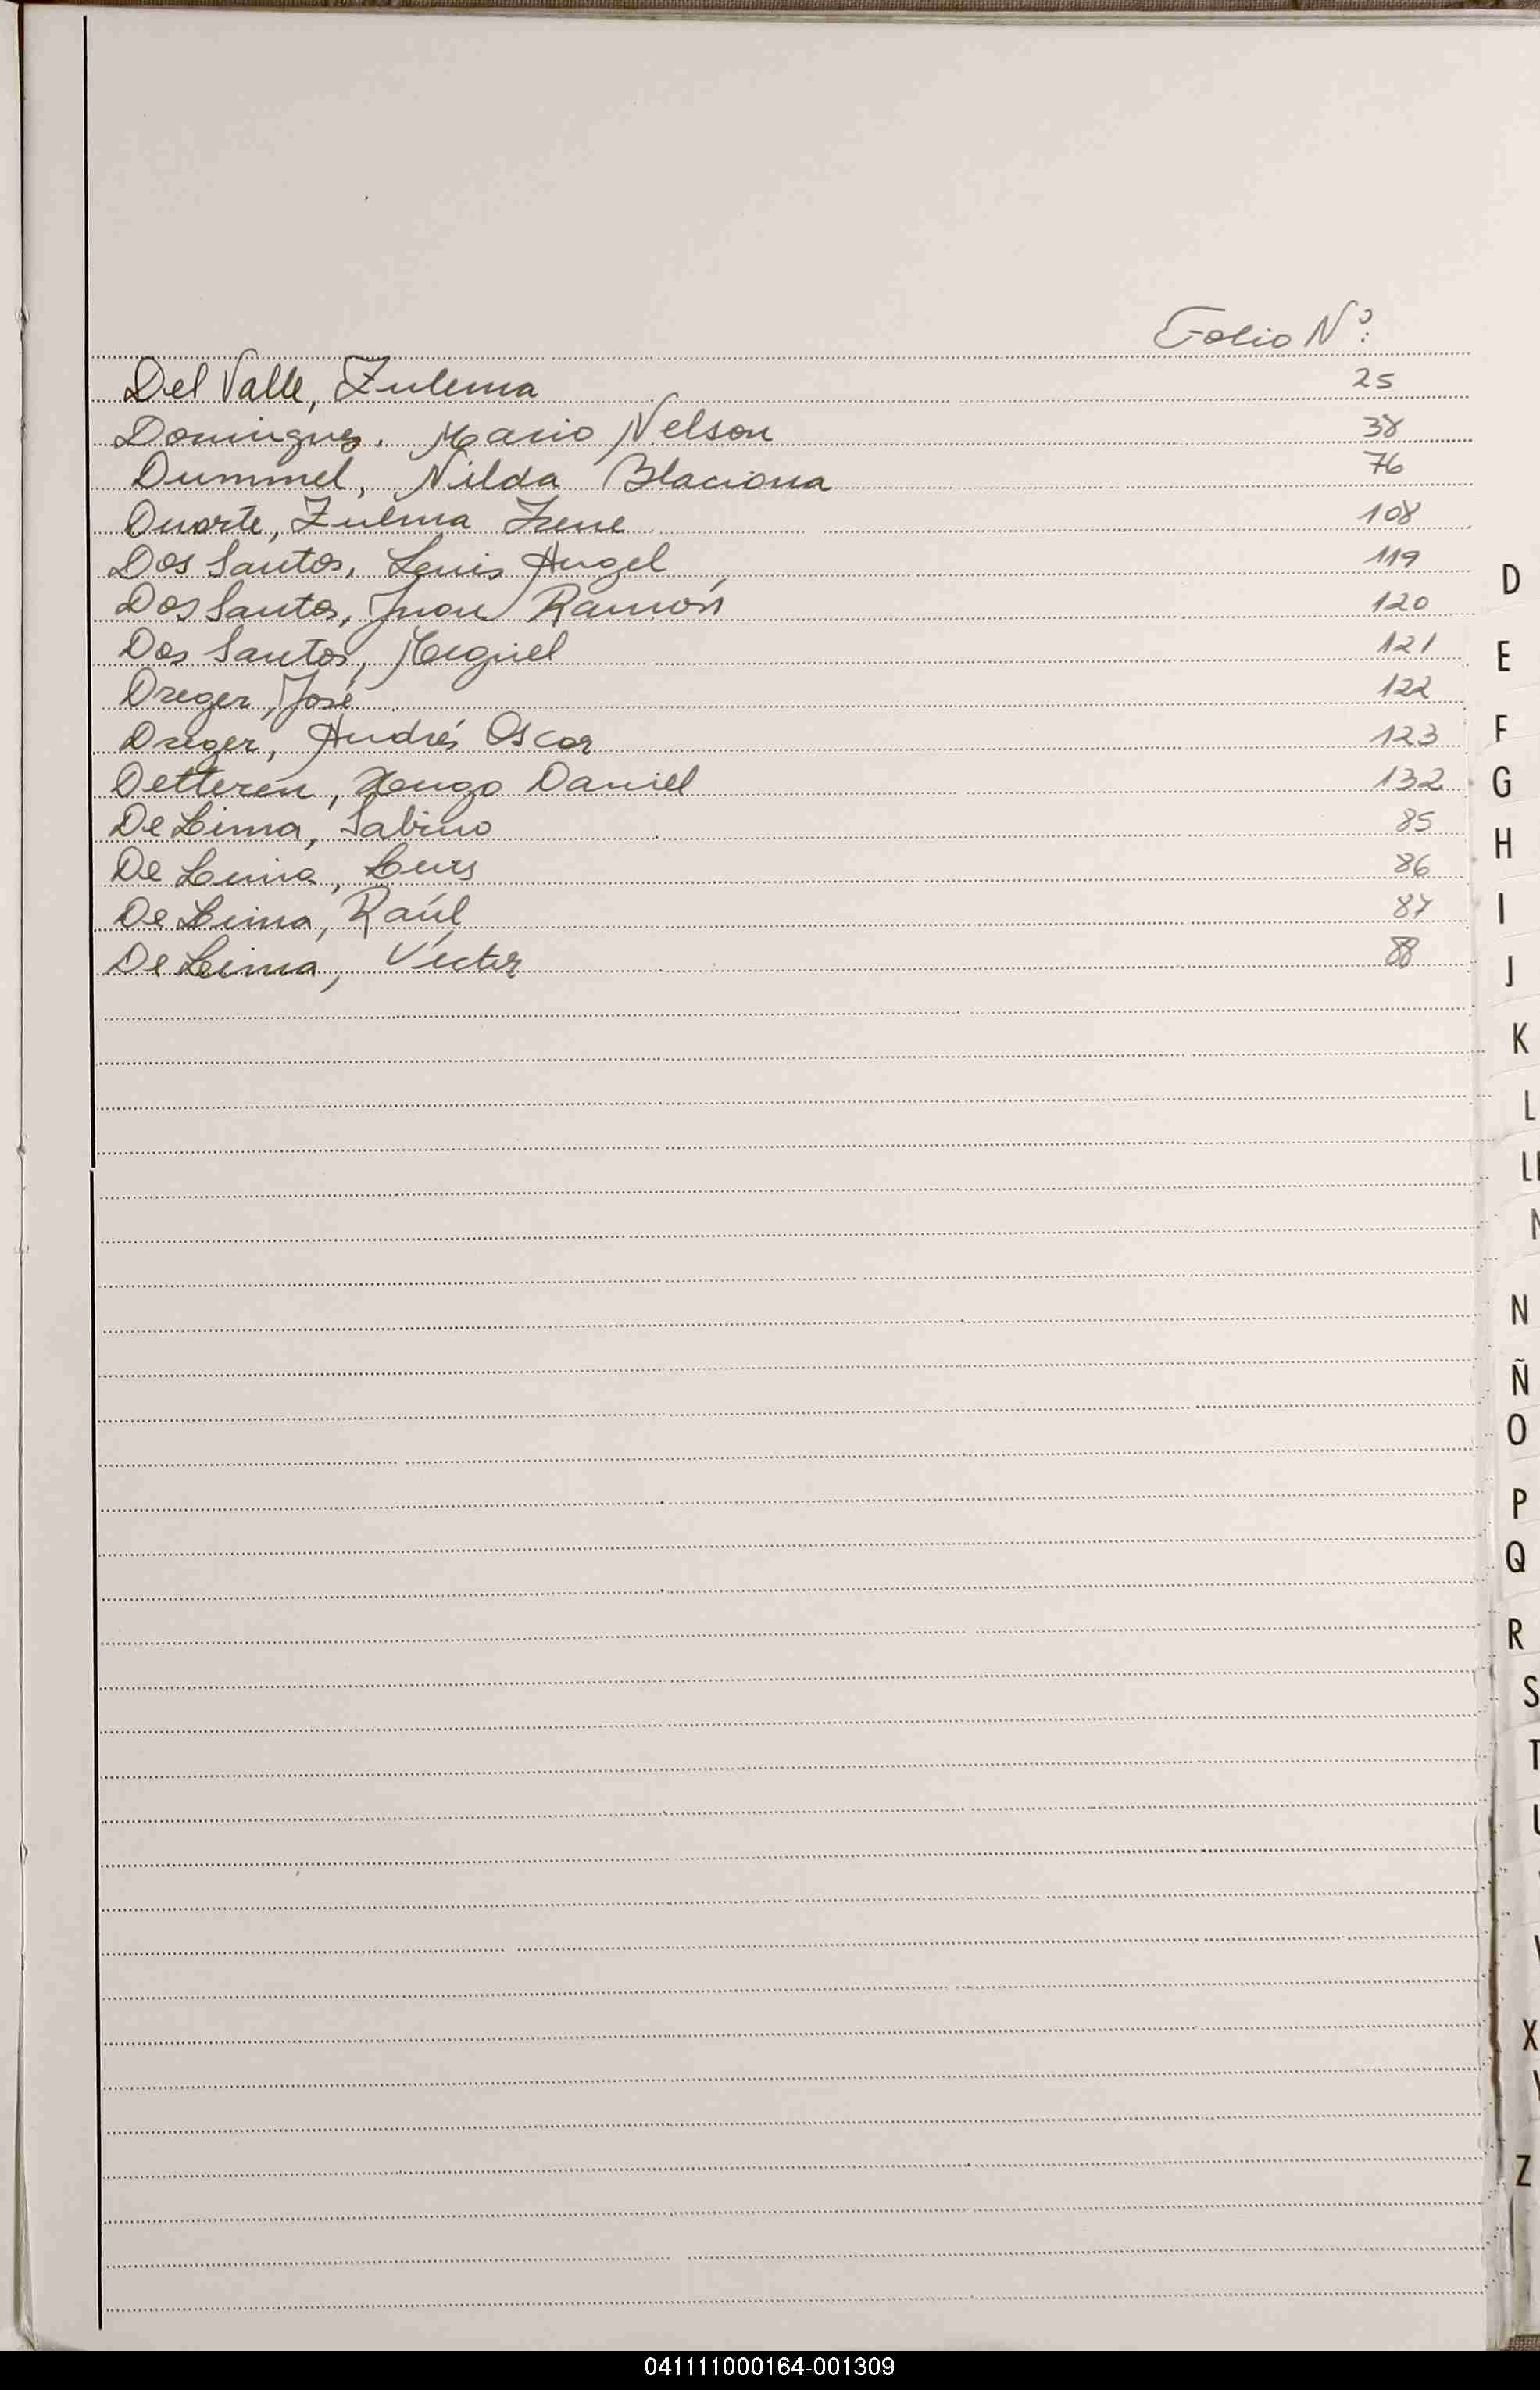 Folio Nº:
Del Valle, Zulema 25
Domingues. Mario Nelson 38
Dummel, Nilda Blaciona 76
Duarte, Zulma Irene 108
Dos Santos, Luis Angel 119
Dos Santos, Juan Ramón 120
Dos Santos, Miguel 121
Dreger, José 122
Dreger, Andrés Oscar 123
Detteren, Hugo Daniel 132
De Lima, Sabino 85
De Lima, Luis 86
De Lima, Raúl 87
De Lima, Víctor 88
D
E
F
G
H
I
J
K
L
Ll
N
Ñ
O
P
Q
R
S
T
U
X
Z
041111000164-001309